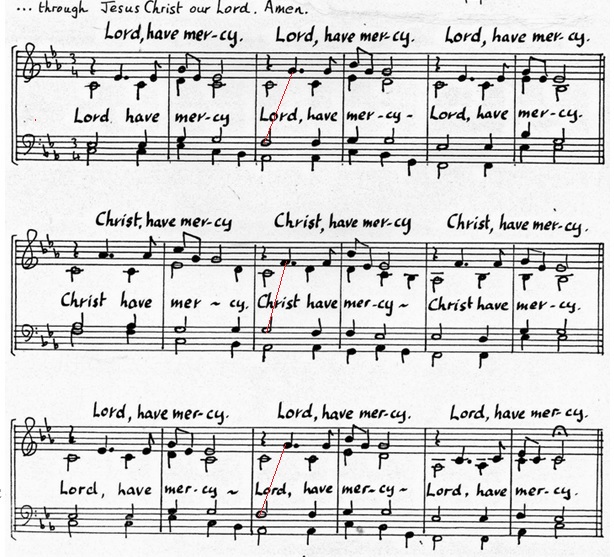 ... through Jesus Christ our Lord. Amen.
Lord, have mer-cy. Lord, have mer-cy. Lord, have mer-cy.
Lord have mer-cy Lord, have mer-cy- Lord, have mer-cy.
Christ, have mer-cy Christ, have mer-cy Christ, have mer-cy.
Christ have mer ~ cy. Christ have mer-cy ~ Christ have mer-cy.
Lord, have mer-cy. Lord, have mer-cy. Lord, have mer-cy.
Lord, have mer-cy ~ Lord, have mer-cy ~ Lord, have mer-cy.